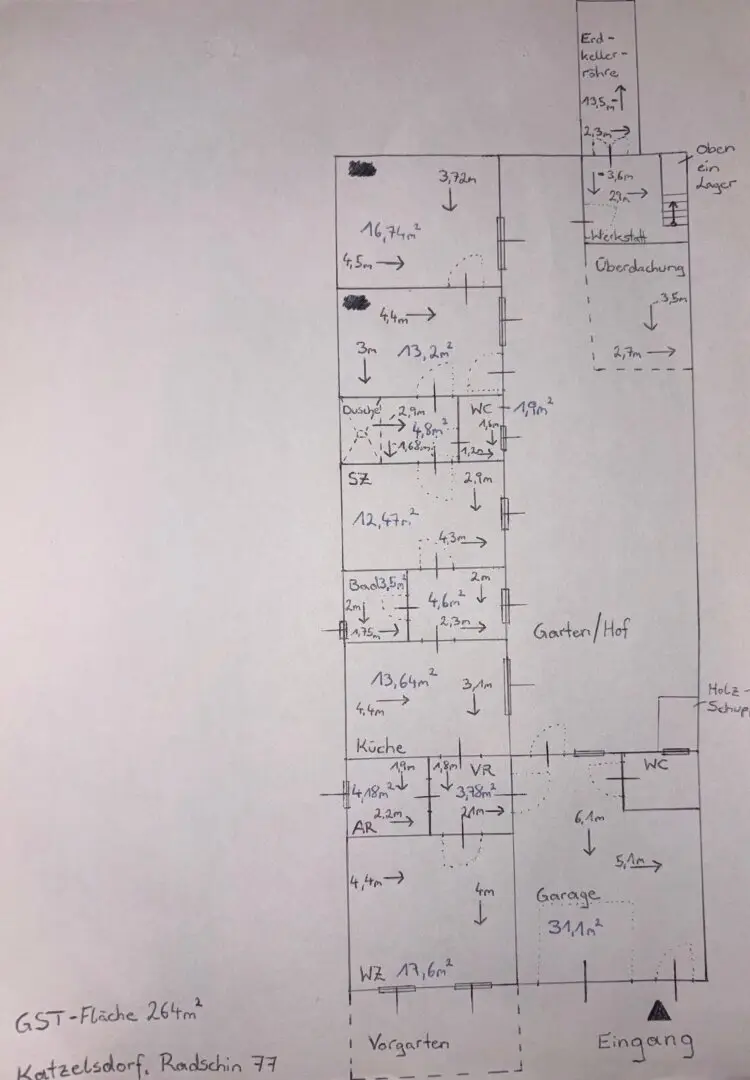 Erd-
keller-
röhre
13,5m
2,3m
Oben
ein
Lager
3,6m
Werkstatt
Überdachung
3,5m
2,7m
3,72m
16,74m²
4,5m
4,4m
3m
13,2m²
Dusche
2,9m
4,8m²
1,68m
WC
1,9m²
1,6m
SZ
2,9m
12,47m²
4,3m
Bad 3,5m²
2m
1,75m
2m
4,6m²
2,3m
Garten/Hof
13,64m²
3,1m
4,4m
Küche
Holz-
Schupp
1,9m
4,18m²
2,2m
AR
1,8m
VR
3,78m²
2,1m
WC
6,1m
5,1m
Garage
31,1m²
4,4m
4m
WZ 17,6m²
GST-Fläche 264m²
Vorgarten
Eingang
Katzelsdorf, Radschin 77